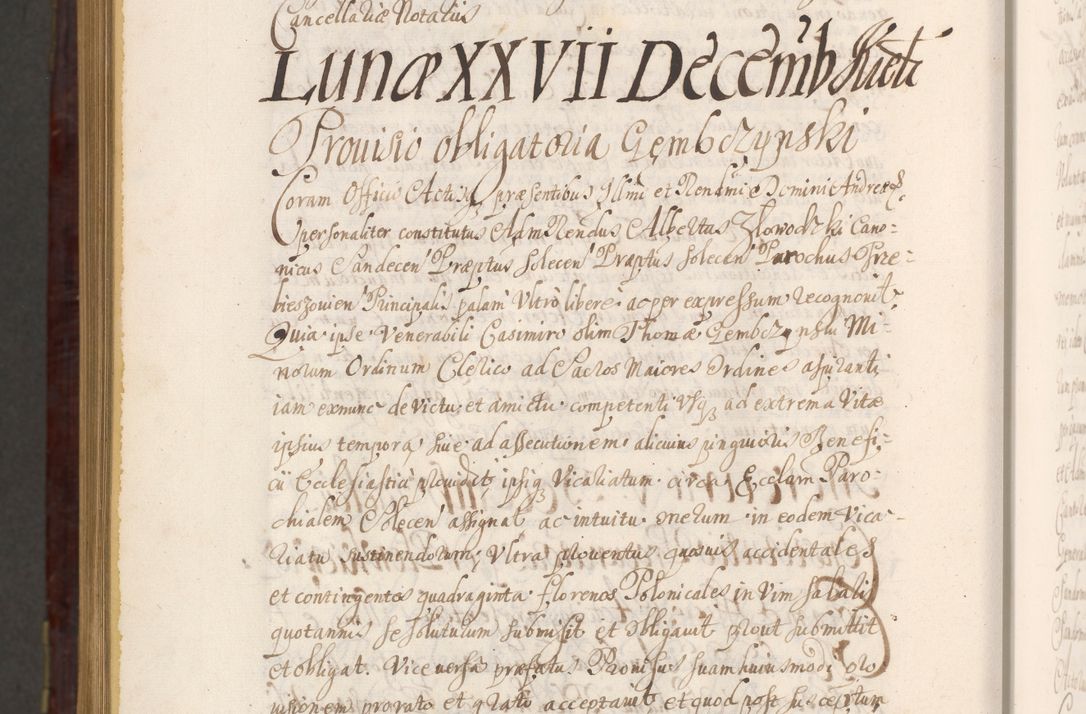 Cancellariæ Notarius
Lunæ XXVII Decemb Kiel:
Provisio obligatoria Gembczynski
Coram Officio Actisq præsentibus Illmi et Rendmi Domini Andreæ
personaliter constitutus Adm Rendus Albertus Zkowodzki Cano-
nicus Sandecen Præptus Solecen Præptus Solecen Parochus Prze-
bieszovien Principalis palam Ultro libere ac per expressum recognovit
Quia ipse Venerabili Casimiro olim Thomæ Gembczynski Mi-
norum Ordinum Clerico ad Sacros Maiores Ordines aspiranti
iam exnunc de Victu et amictu competenti Vsq ad extrema Vitæ
ipsius tempora sive ad assecutionem alicuius pinguioris Benefi-
cii Ecclesiastici providit, ipsiq Vicariatum circa Ecclam Paro-
chialem Solecen assignat ac intuitu onerum in eodem Vica-
riatu sustinendorum, Ultra proventus quosvis accidentales
et contingentes quadraginta Florenos Polonicales in Vim salarii
quotannis se soluturum submisit et obligavit prout submittit
et obligat. Vice versa præfatus Provisus suam huiusmodi pro
visionem pro rato et grato acceptavit et quod post susceptum